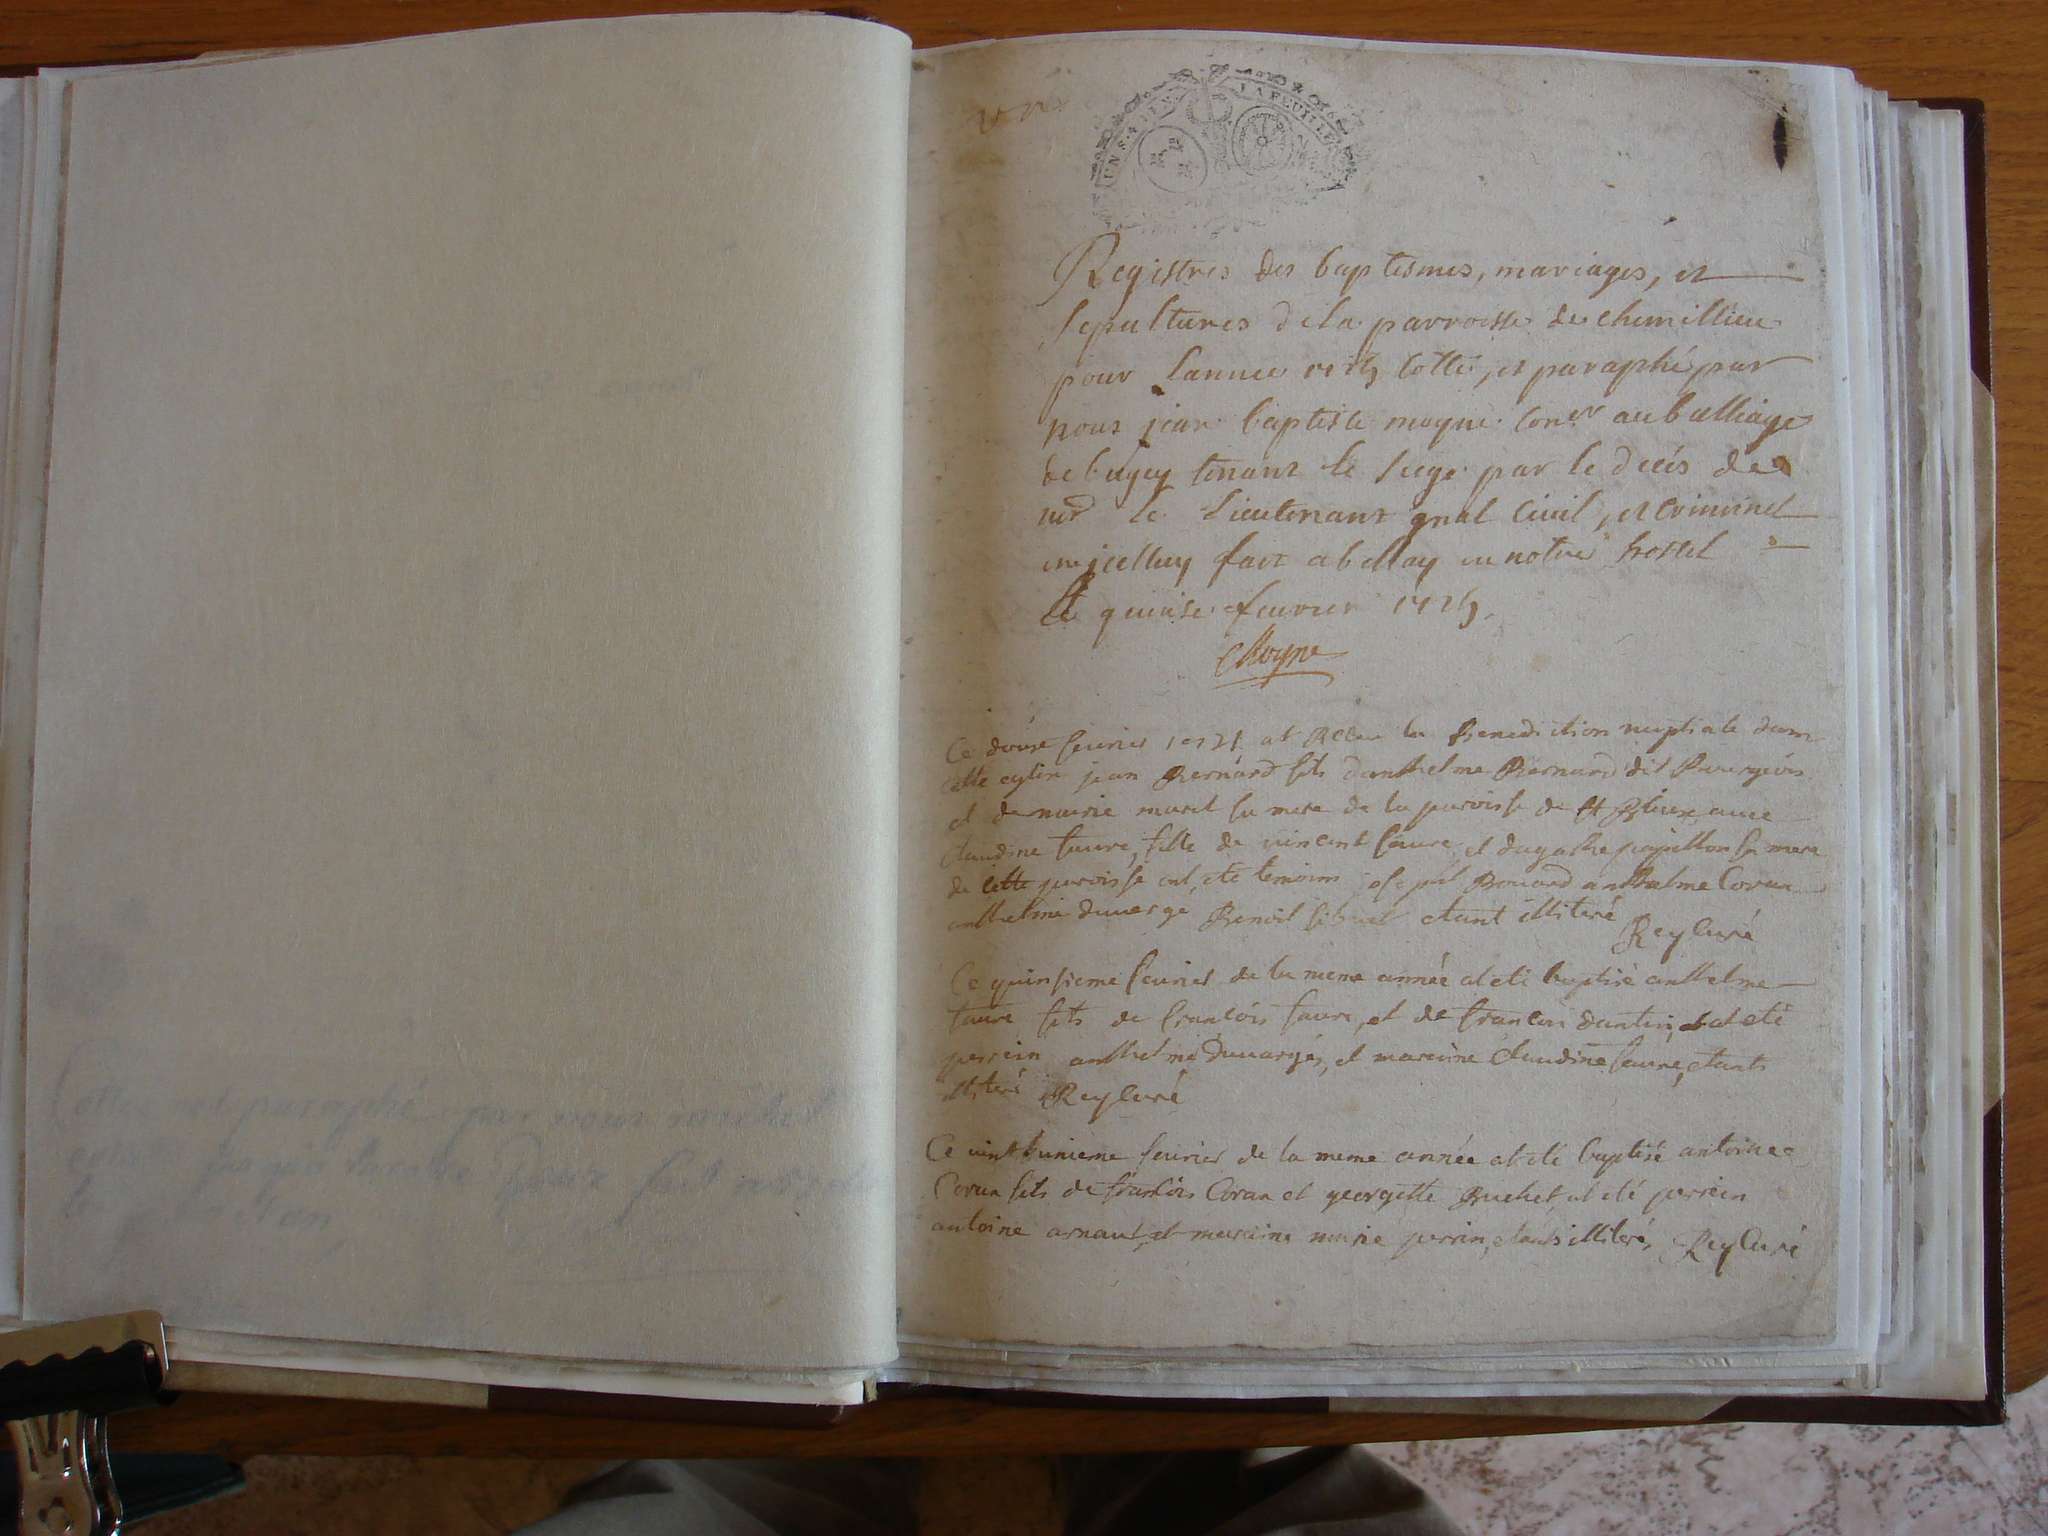 UN S. 4 DEN. LA FEUILLE
Registres des baptesmes, mariages, et
sepultures de la parroisse de chemillieu
pour lannée cotté, et paraphé par
nous jean baptiste moyne conser au balliage
de bugey tenant le siege par le decés de
mr le lieutenant gnal civil, et criminel
en icelluy fait a bellay en notre hostel
le quinse feuvrier
Moyne
Ce douse feurier at Receu la Benediction nuptiale dans
cette eglise jean Bernard fils danthelme Bernard dit Bourgeois
et de marie murel sa mere de la paroisse de st auec
claudine faure, fille de vincent faure et dagathe papillon sa mere
de cette paroisse ont ete temoins Bouard anthelme Coran
anthelme duuerge Benoit etant illiteré
Rey Curé
Ce quinsieme feurier de la meme année at eté baptisé anthelme
faure fils de francois faure, et de at eté
perrein anthelme Duuargés, et mareine Claudine faure, etants
illiteré Rey Curé
Ce vint unieme feurier de la meme année at eté baptisé antoine
Coran fils de francois Coran et georgette Buchet, at eté perrein
antoine arnaut, et mareine marie perrin, etants illiteré, Rey Curé